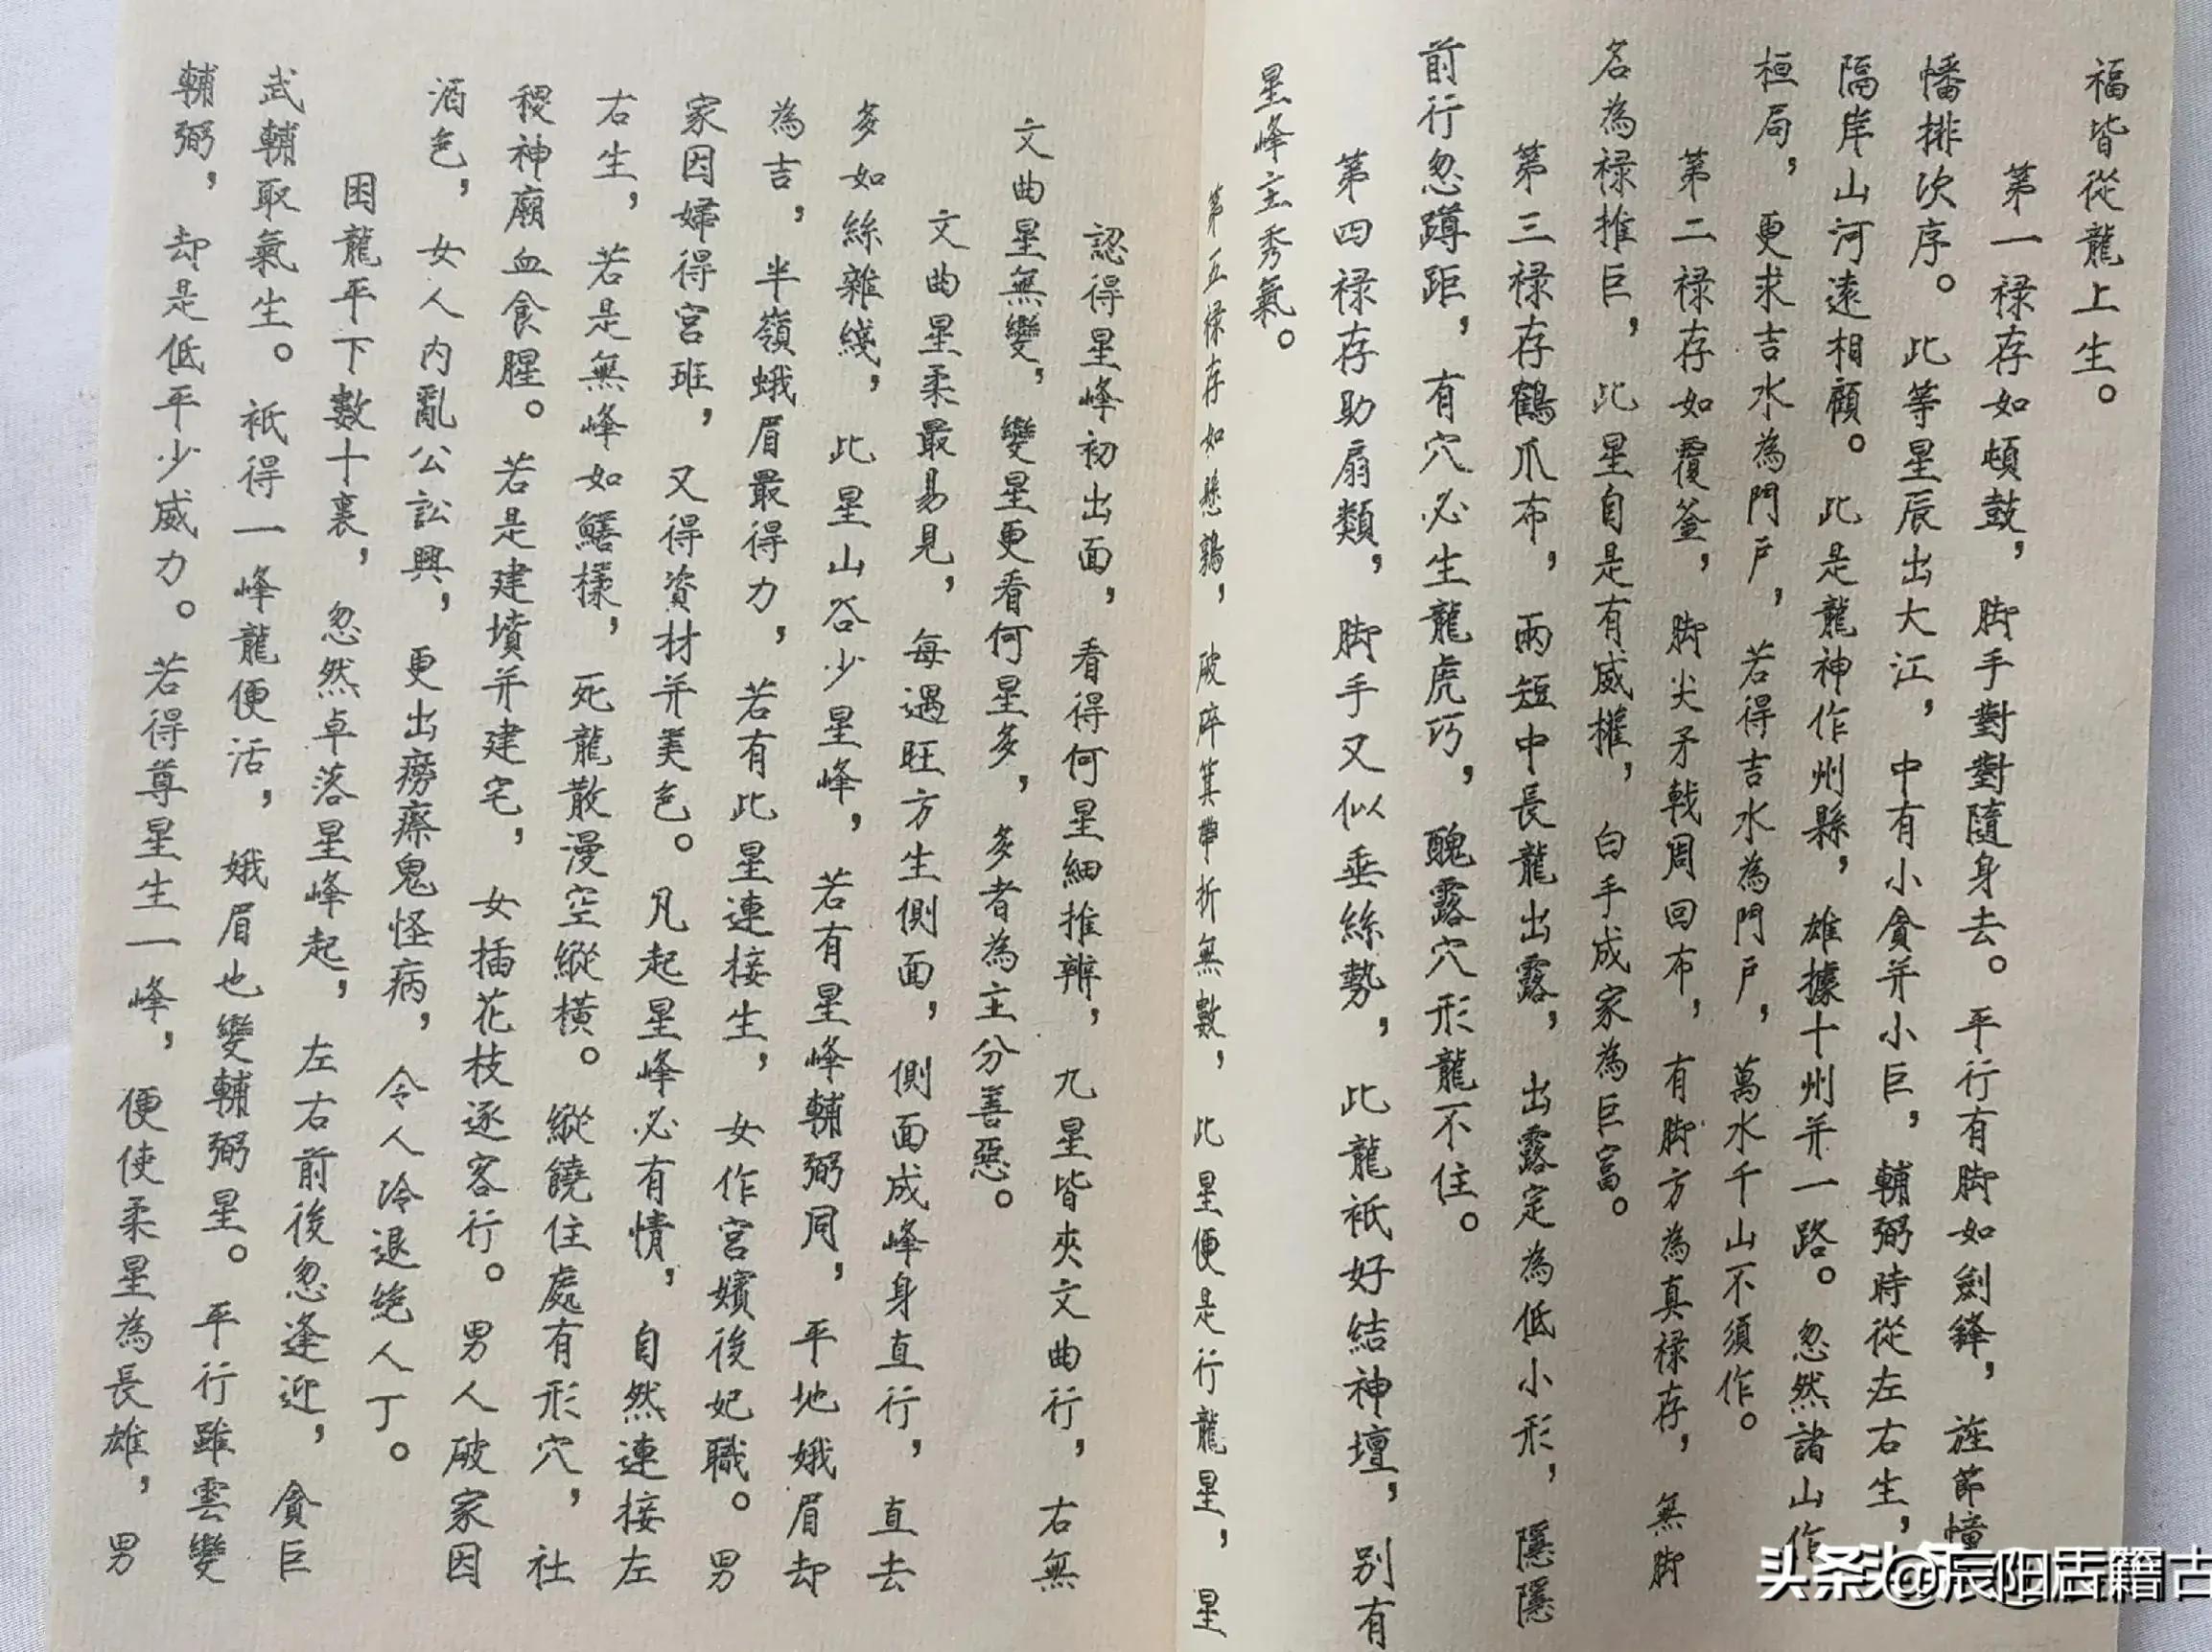 福皆從龍上生。
第一禄存如頓鼓，脚手對對隨身去。平行有脚如劍鋒，旌節幢
幡排次序。此等星辰出大江，中有小貪并小巨，輔弼時從左右生，
隔岸山河遠相顧。此是龍神作州縣，雄據十州并一路。忽然諸山作
桓局，更求吉水為門户，若得吉水為門户，萬水千山不須作。
第二禄存如覆釜，脚尖矛戟周回布，有脚方為真禄存，無脚
名為禄推巨，此星自是有威權，白手成家為巨富。
第三禄存鶴爪布，兩短中長龍出露，出露定為低小形，隱隱
前行忽蹲距，有穴必生龍虎巧，醜露穴形龍不住。
第四禄存助扇類，脚手又似垂絲勢，此龍衹好結神壇，别有
星峰主秀氣。
第五禄存如懸鶉，破碎箕帶折無數，此星便是行龍星，星
認得星峰初出面，看得何星細推辨，九星皆夾文曲行，右無
文曲星無變，變星更看何星多，多者為主分善惡。
文曲星柔最易見，每遇旺方生側面，側面成峰身直行，直去
多如絲雜綫，此星山谷少星峰，若有星峰輔弼同，平地娥眉却
為吉，半嶺蛾眉最得力，若有此星連接生，女作宮嬪後妃職。男
家因婦得宮班，又得資材并美色。凡起星峰必有情，自然連接左
右生，若是無峰如鱔樣，死龍散漫空縱橫。縱饒住處有形穴，社
稷神廟血食腥。若是建墳并建宅，女插花枝逐客行。男人破家因
酒色，女人内亂公訟興，更出癆瘵鬼怪病，令人冷退绝人丁。
困龍平下數十裏，忽然卓落星峰起，左右前後忽逢迎，貪巨
武輔取氣生。衹得一峰龍便活，娥眉也變輔弼星。平行雖雲變
輔弼，却是低平少威力。若得尊星生一峰，便使柔星為長雄，男
头条@辰阳古籍古